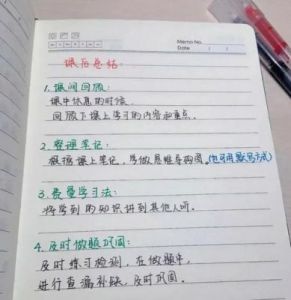 Memo No.
Date ( )
课后总结
1.课间回放:
课中休息的时候
回顾下课上学习的内容和重点.
2.整理笔记:
根据课上笔记,去做思维导构图.(也可用默写方式)
3.费曼学习法:
将学到的知识讲到其他人听.
4.及时做题巩固:
及时练习检测,在做题中,
进行查漏补缺,及时巩固.